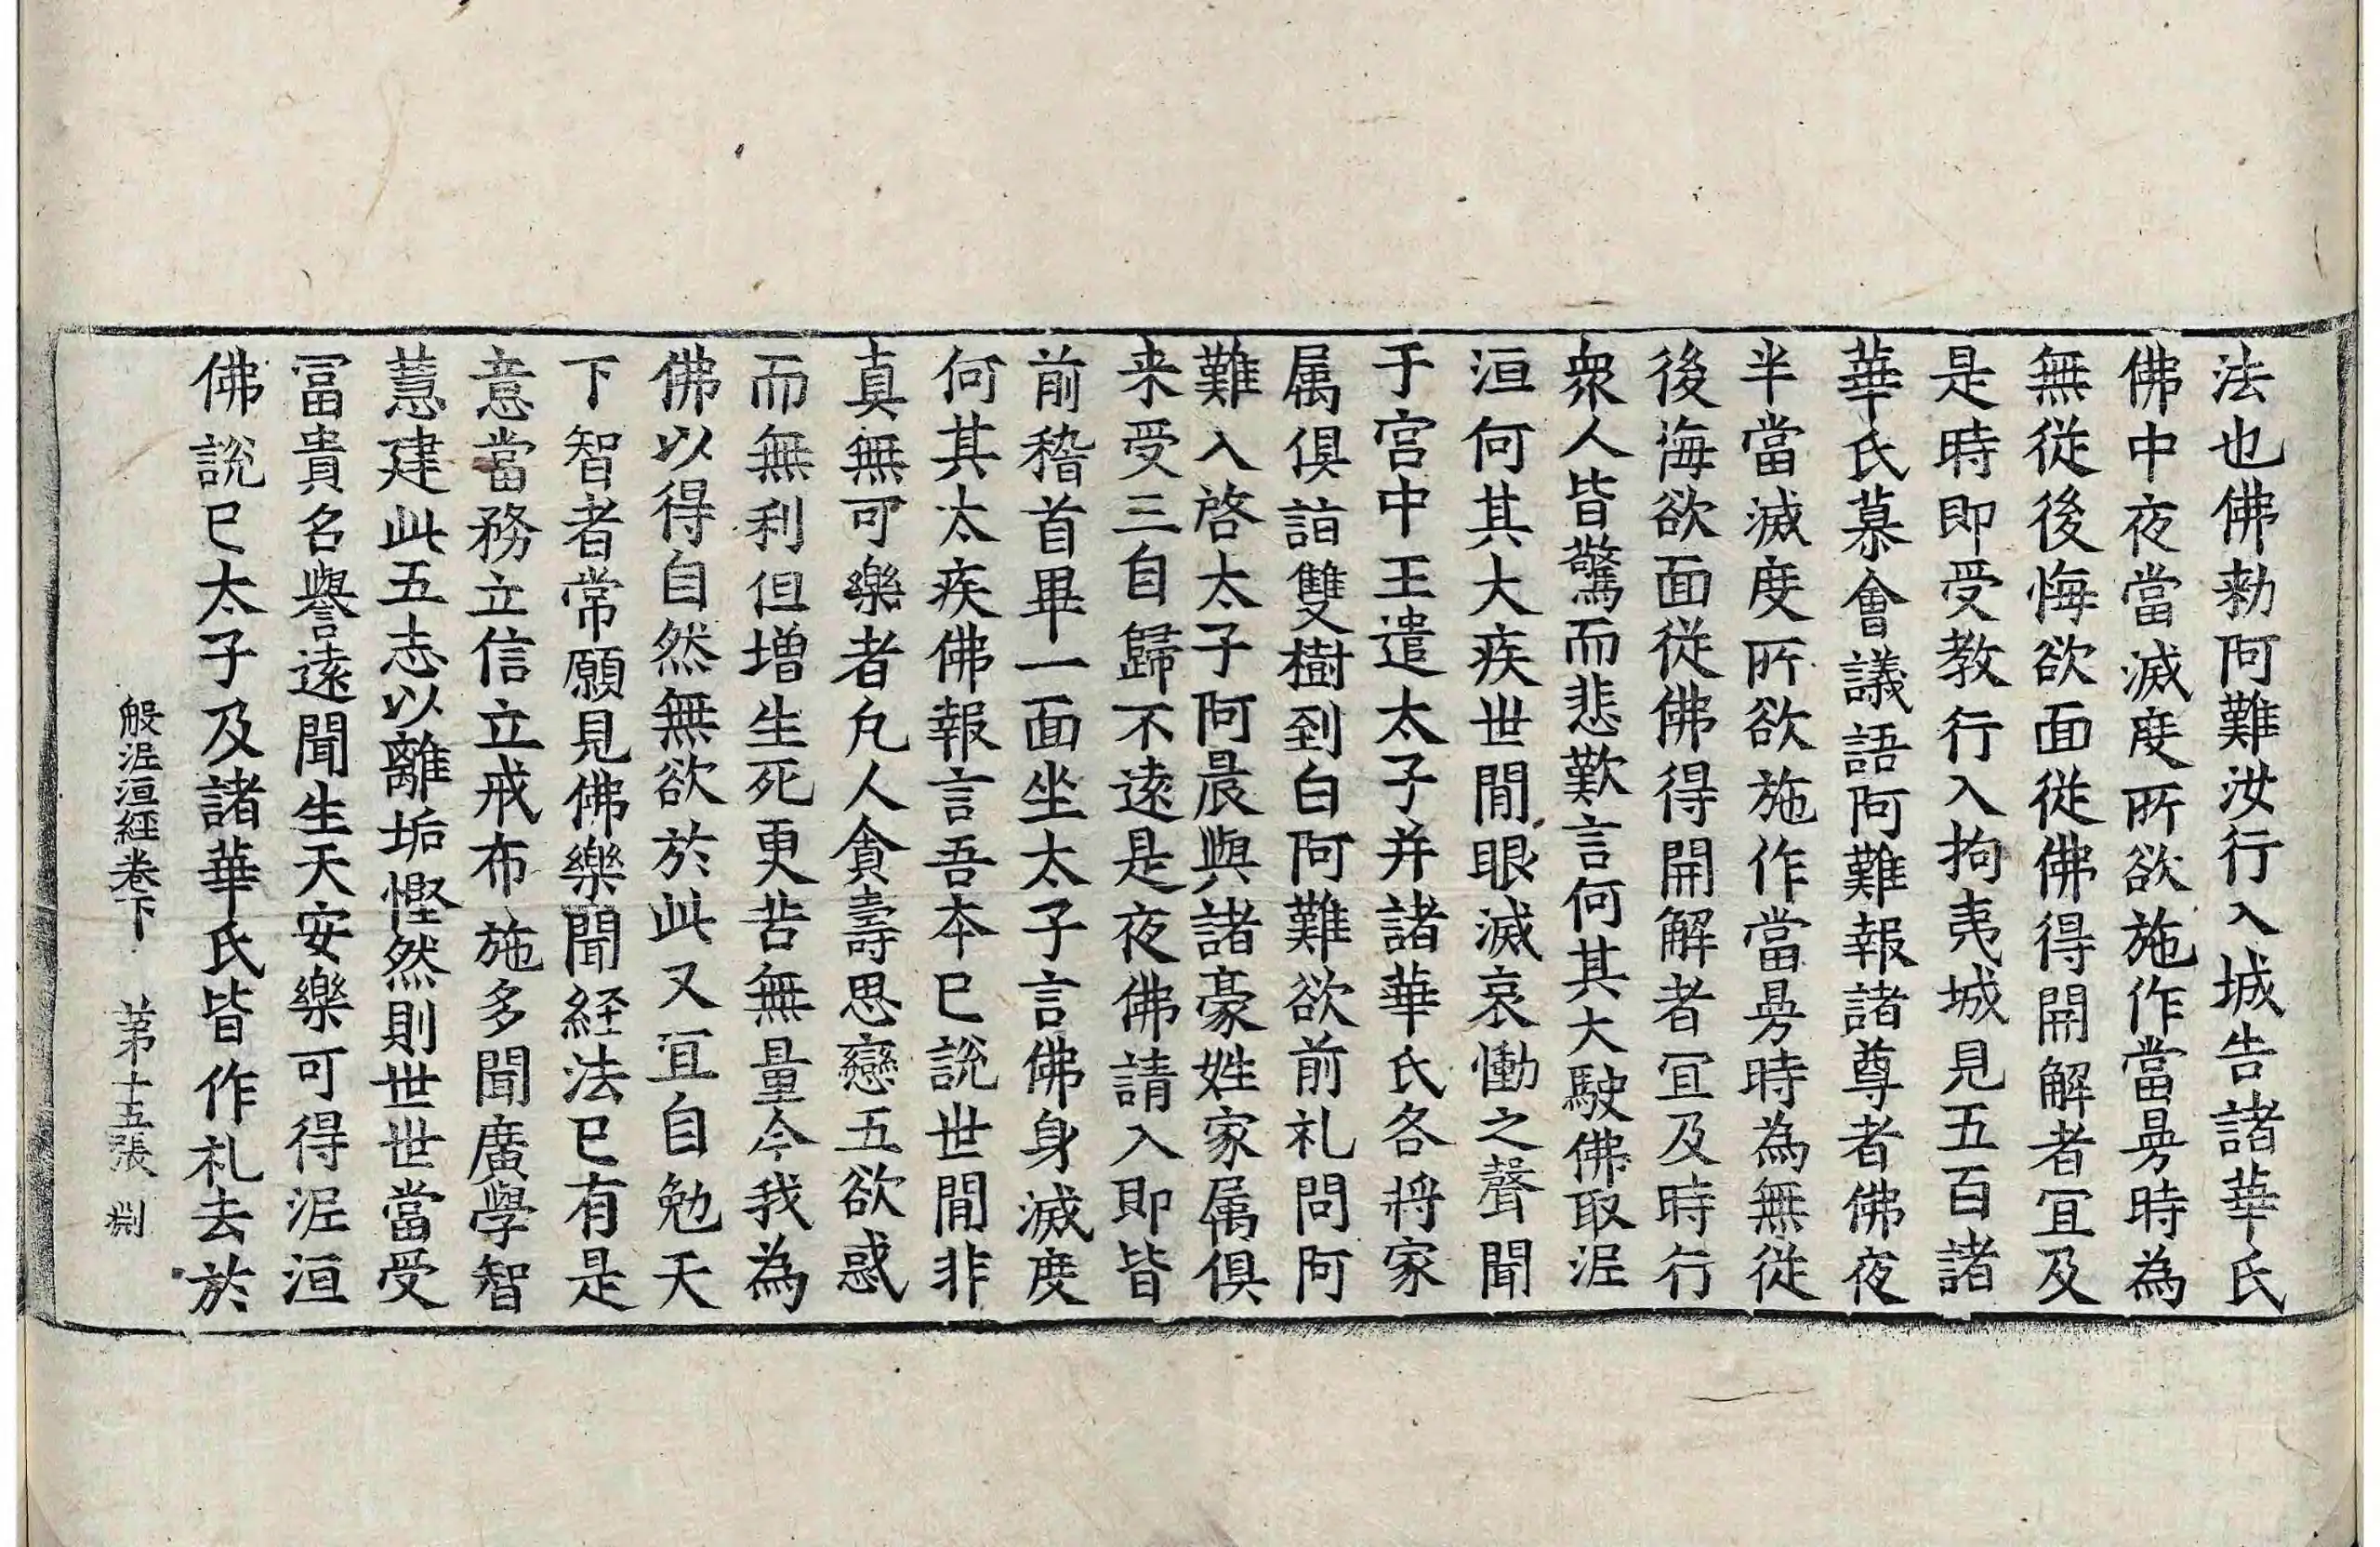 法也佛勑阿難汝行入城告諸華氏
佛中夜當滅度所欲施作當㫄時為
無從後悔欲面從佛得開解者冝及
是時即受教行入拘夷城見五百諸
華氏慕會議語阿難報諸尊者佛夜
半當滅度所欲施作當㫄時為無從
後海欲面從佛得開解者冝及時行
衆人皆驚而悲歎言何其大駛佛取泥
洹何其大疾世間眼滅哀慟之聲聞
于宫中王遣太子并諸華氏各將家
属俱詣雙樹到白阿難欲前礼問阿
難入啓太子阿晨與諸豪姓家属俱
来受三自歸不遠是夜佛請入即皆
前稽首畢一面坐太子言佛身滅度
何其太疾佛報言吾本已說世間非
真無可樂者凢人貪壽思戀五欲惑
而無利但增生死更苦無量今我為
佛以得自然無欲於此又冝自勉天
下智者常願見佛樂聞経法已有是
意當務立信立戒布施多聞廣學智
慧建此五志以離垢慳然則世世當受
冨貴名譽遠聞生天安樂可得泥洹
佛說已太子及諸華氏皆作礼去於
般泥洹經卷下 苐十五張 㓨